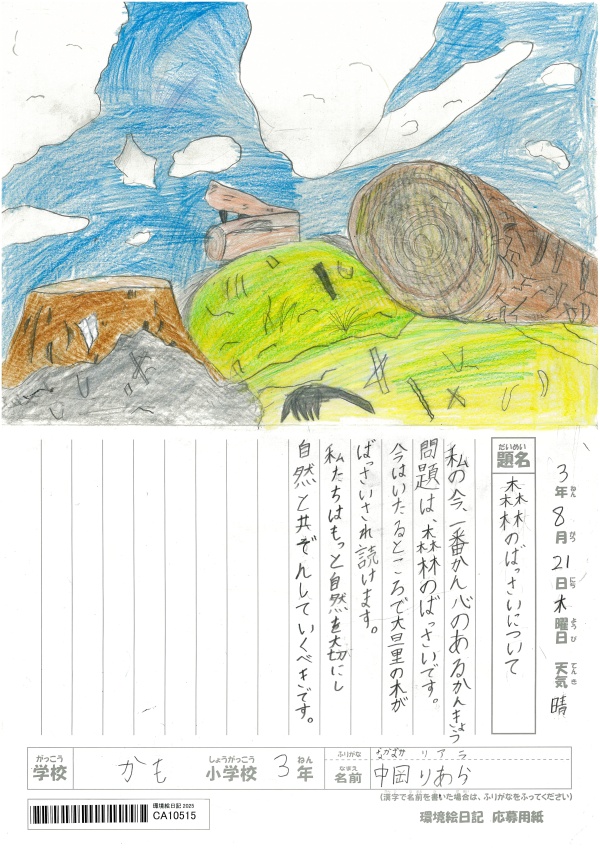 3年ねん8月がつ21日にち木曜日ようび 天気てんき 晴
だいめい
題名
森林のばっさいについて
私の今、一番かん心のあるかんきょう
問題は、森林のばっさいです。
今はいたるところで大量の木が
ばっさいされ読けます。
私たちはもっと自然を大切にし
自然と共ぞんしていくべきです。
がっこう
学校
かも
しょうがっこう
小学校
3
ねん
年
ふりがな
なかおか リアラ
なまえ
名前
中岡りあら
(漢字で名前を書いた場合は、ふりがなをふってください)
環境絵日記 2025
CA10515
環境絵日記 応募用紙